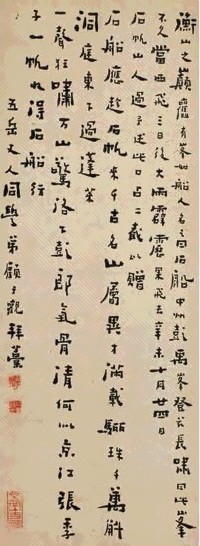 衡山之巔舊有峯如船人名之曰石船中州彭萬峯登長嘯曰此峯
不久當西飛三日後大雨霹靂果飛去辛未十月廿四日
石帆山人過予述此口占二截以贈
石船應趁石帆來千古名山屬異才滿載驪珠千萬斛
洞庭東下過蓬萊
一聲狂嘯万山驚洛下彭郎氣骨清何似京江張季
子一帆得石船行
五岳丈人同學弟顧子觀拜藁